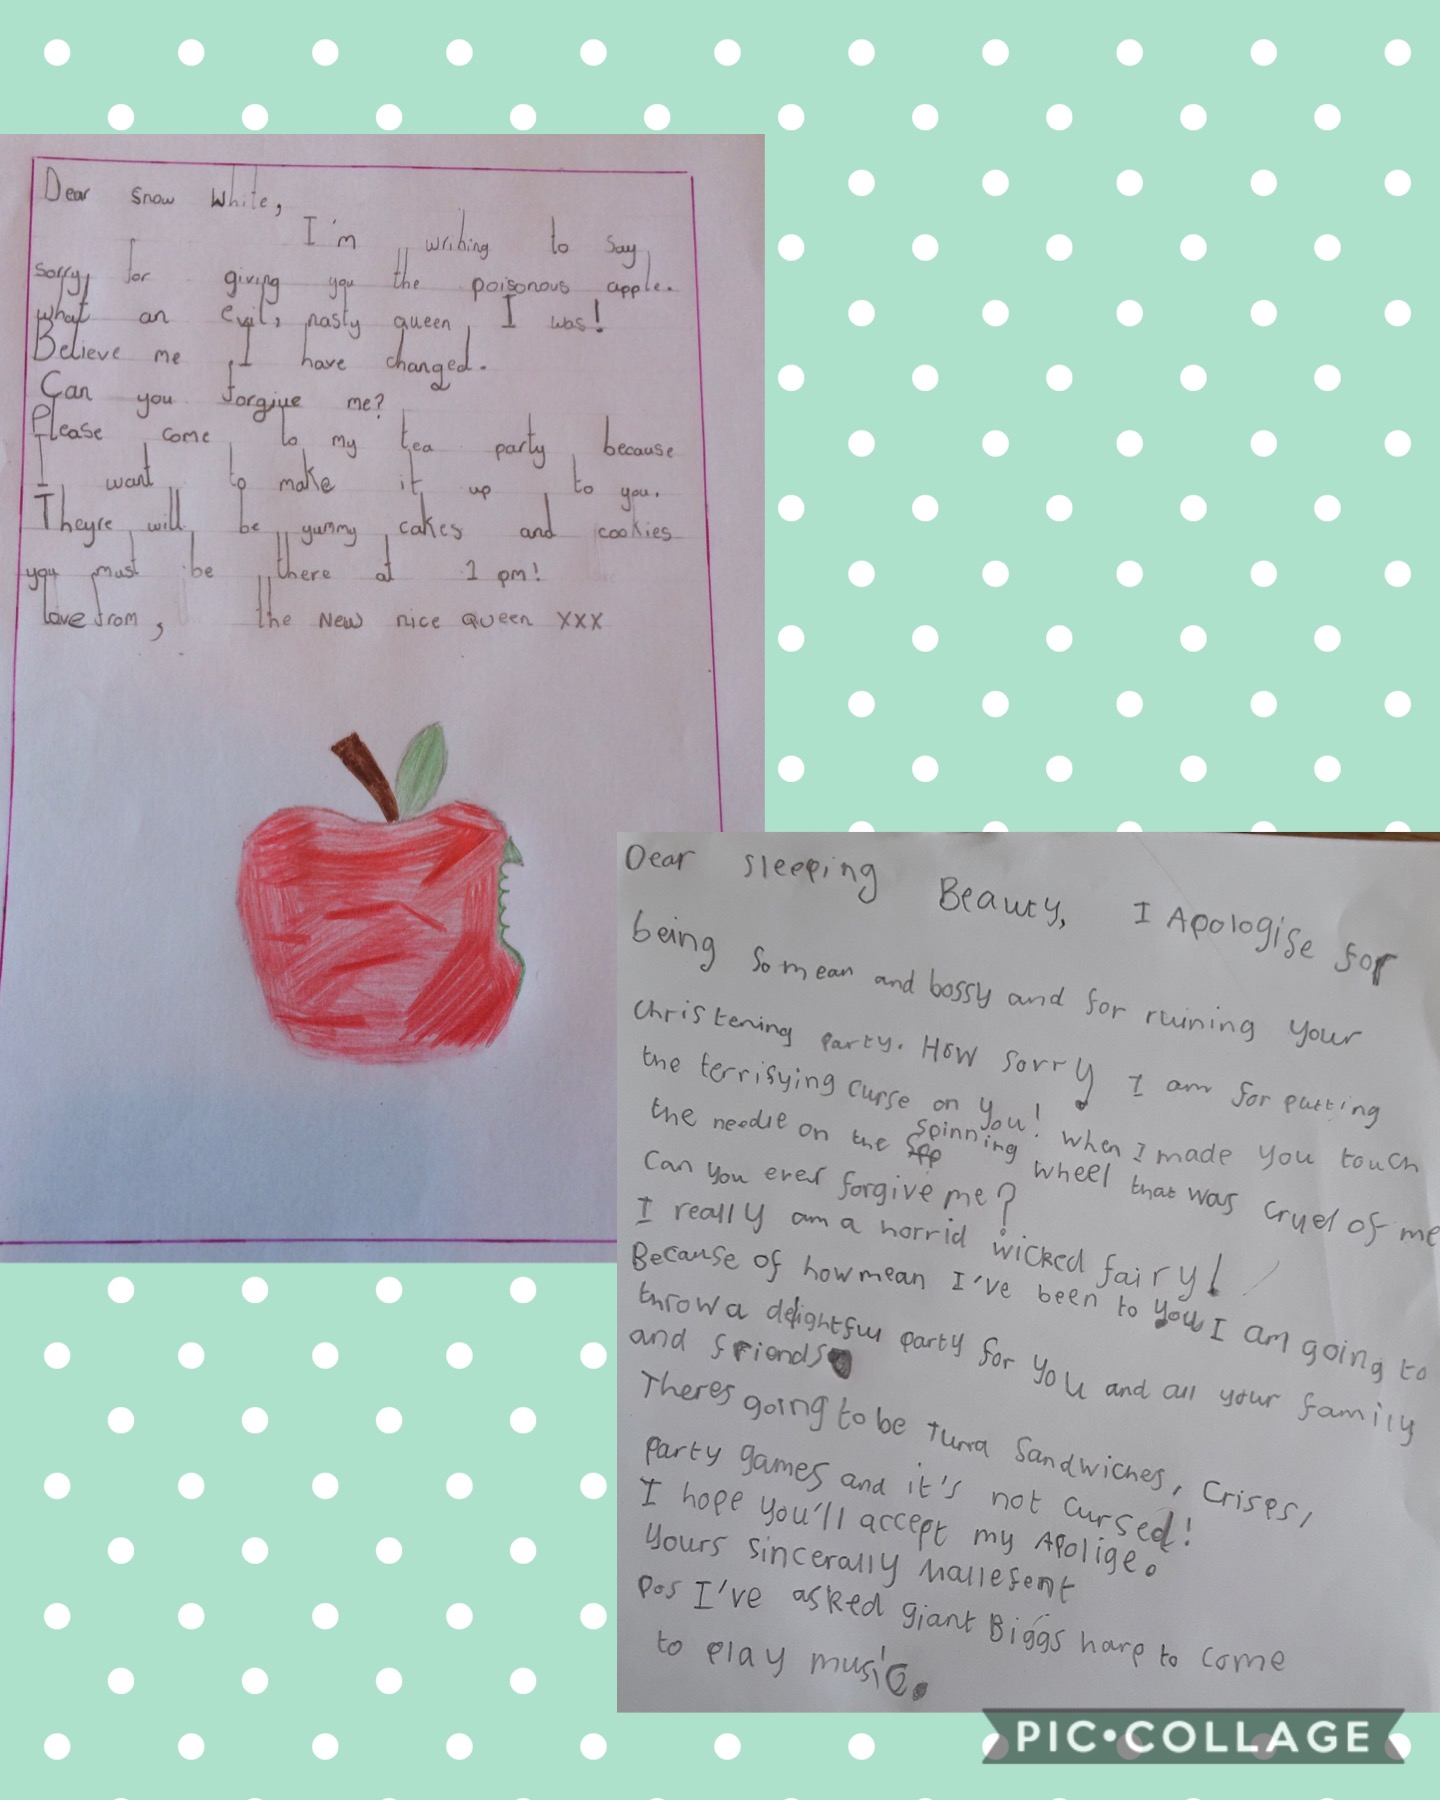 Dear Snow White,
I'm writing to say
sorry for giving you the poisonous apple.
what an evil, nasty queen I was!
Believe me I have changed.
Can you forgive me?
Please come to my tea party because
I want to make it up to you.
Theyre will be yummy cakes and cookies
you must be there at 1 pm!
love from, the New nice Queen xxx
Dear Sleeping Beauty, I Apologise for
being so mean and bossy and for ruining your
christening party. How sorry I am for putting
the terrifying curse on you! when I made you touch
the needle on the spinning wheel that was cruel of me
Can you ever forgive me?
I really am a horrid wicked fairy!
Because of how mean I've been to you I am going to
throw a delightful party for you and all your family
and friends
Theres going to be Tuna Sandwiches, Crisps,
party games and it's not cursed!
I hope you'll accept my Apolige.
yours sincerally Mallefent
pos I've asked giant Biggs harp to come
to play music.
PIC•COLLAGE